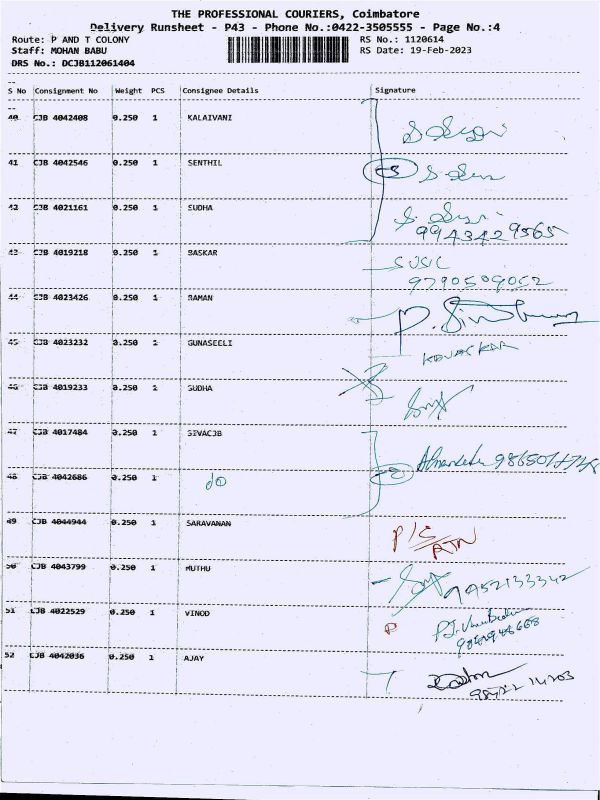 THE PROFESSIONAL COURIERS, Coimbatore
Delivery Runsheet - P43 - Phone No.:0422-3505555 - Page No.:4
Route: P AND T COLONY
Staff: MOHAN BABU
DRS No.: DCJB112061404
RS No.: 1120614
RS Date: 19-Feb-2023
S No Consignment No Weight PCS Consignee Details Signature
40 CJB 4042408 0.250 1 KALAIVANI
41 CJB 4042546 0.250 1 SENTHIL
42 CJB 4021161 0.250 1 SUDHA
9943429565
43 CJB 4019218 0.250 1 BASKAR SUSIL
9790509052
44 CJB 4023426 0.250 1 RAMAN
45 CJB 4023232 0.250 1 GUNASEELI KAVASKAR
46 CJB 4019233 0.250 1 SUDHA
47 CJB 4017484 0.250 1 SIVACJB
48 CJB 4042686 0.250 1 do
49 CJB 4044944 0.250 1 SARAVANAN P/C
RTN
50 CJB 4043799 0.250 1 MUTHU 9952133342
51 CJB 4022529 0.250 1 VINOD
52 CJB 4042036 0.250 1 AJAY